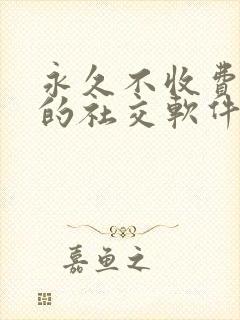 永久不收費
的社交軟件
嘉鱼之